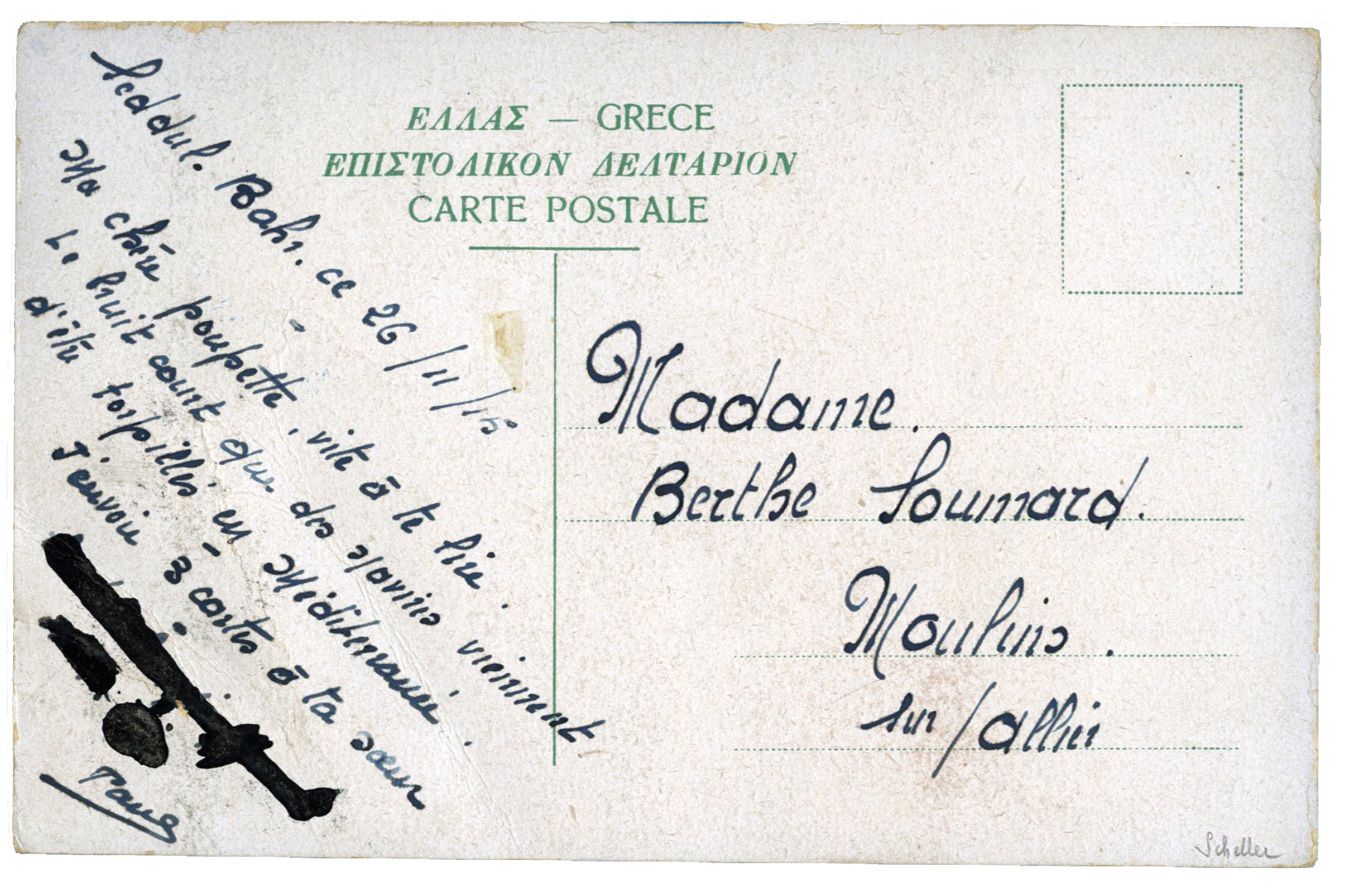 ΕΛΛΑΣ — GRECE
ΕΠΙΣΤΟΛΙΚΟΝ ΔΕΛΤΑΡΙΟΝ
CARTE POSTALE
Seddul. Bahr. ce 26/11/15
Ma chère poupette, vite à te lire.
Le bruit court que des navires viennent
d'être torpillés en Méditerranée.
J'envoie 3 cartes à ta sœur
Madame.
Berthe Soumard.
Moulins.
sur/allier
Scheller